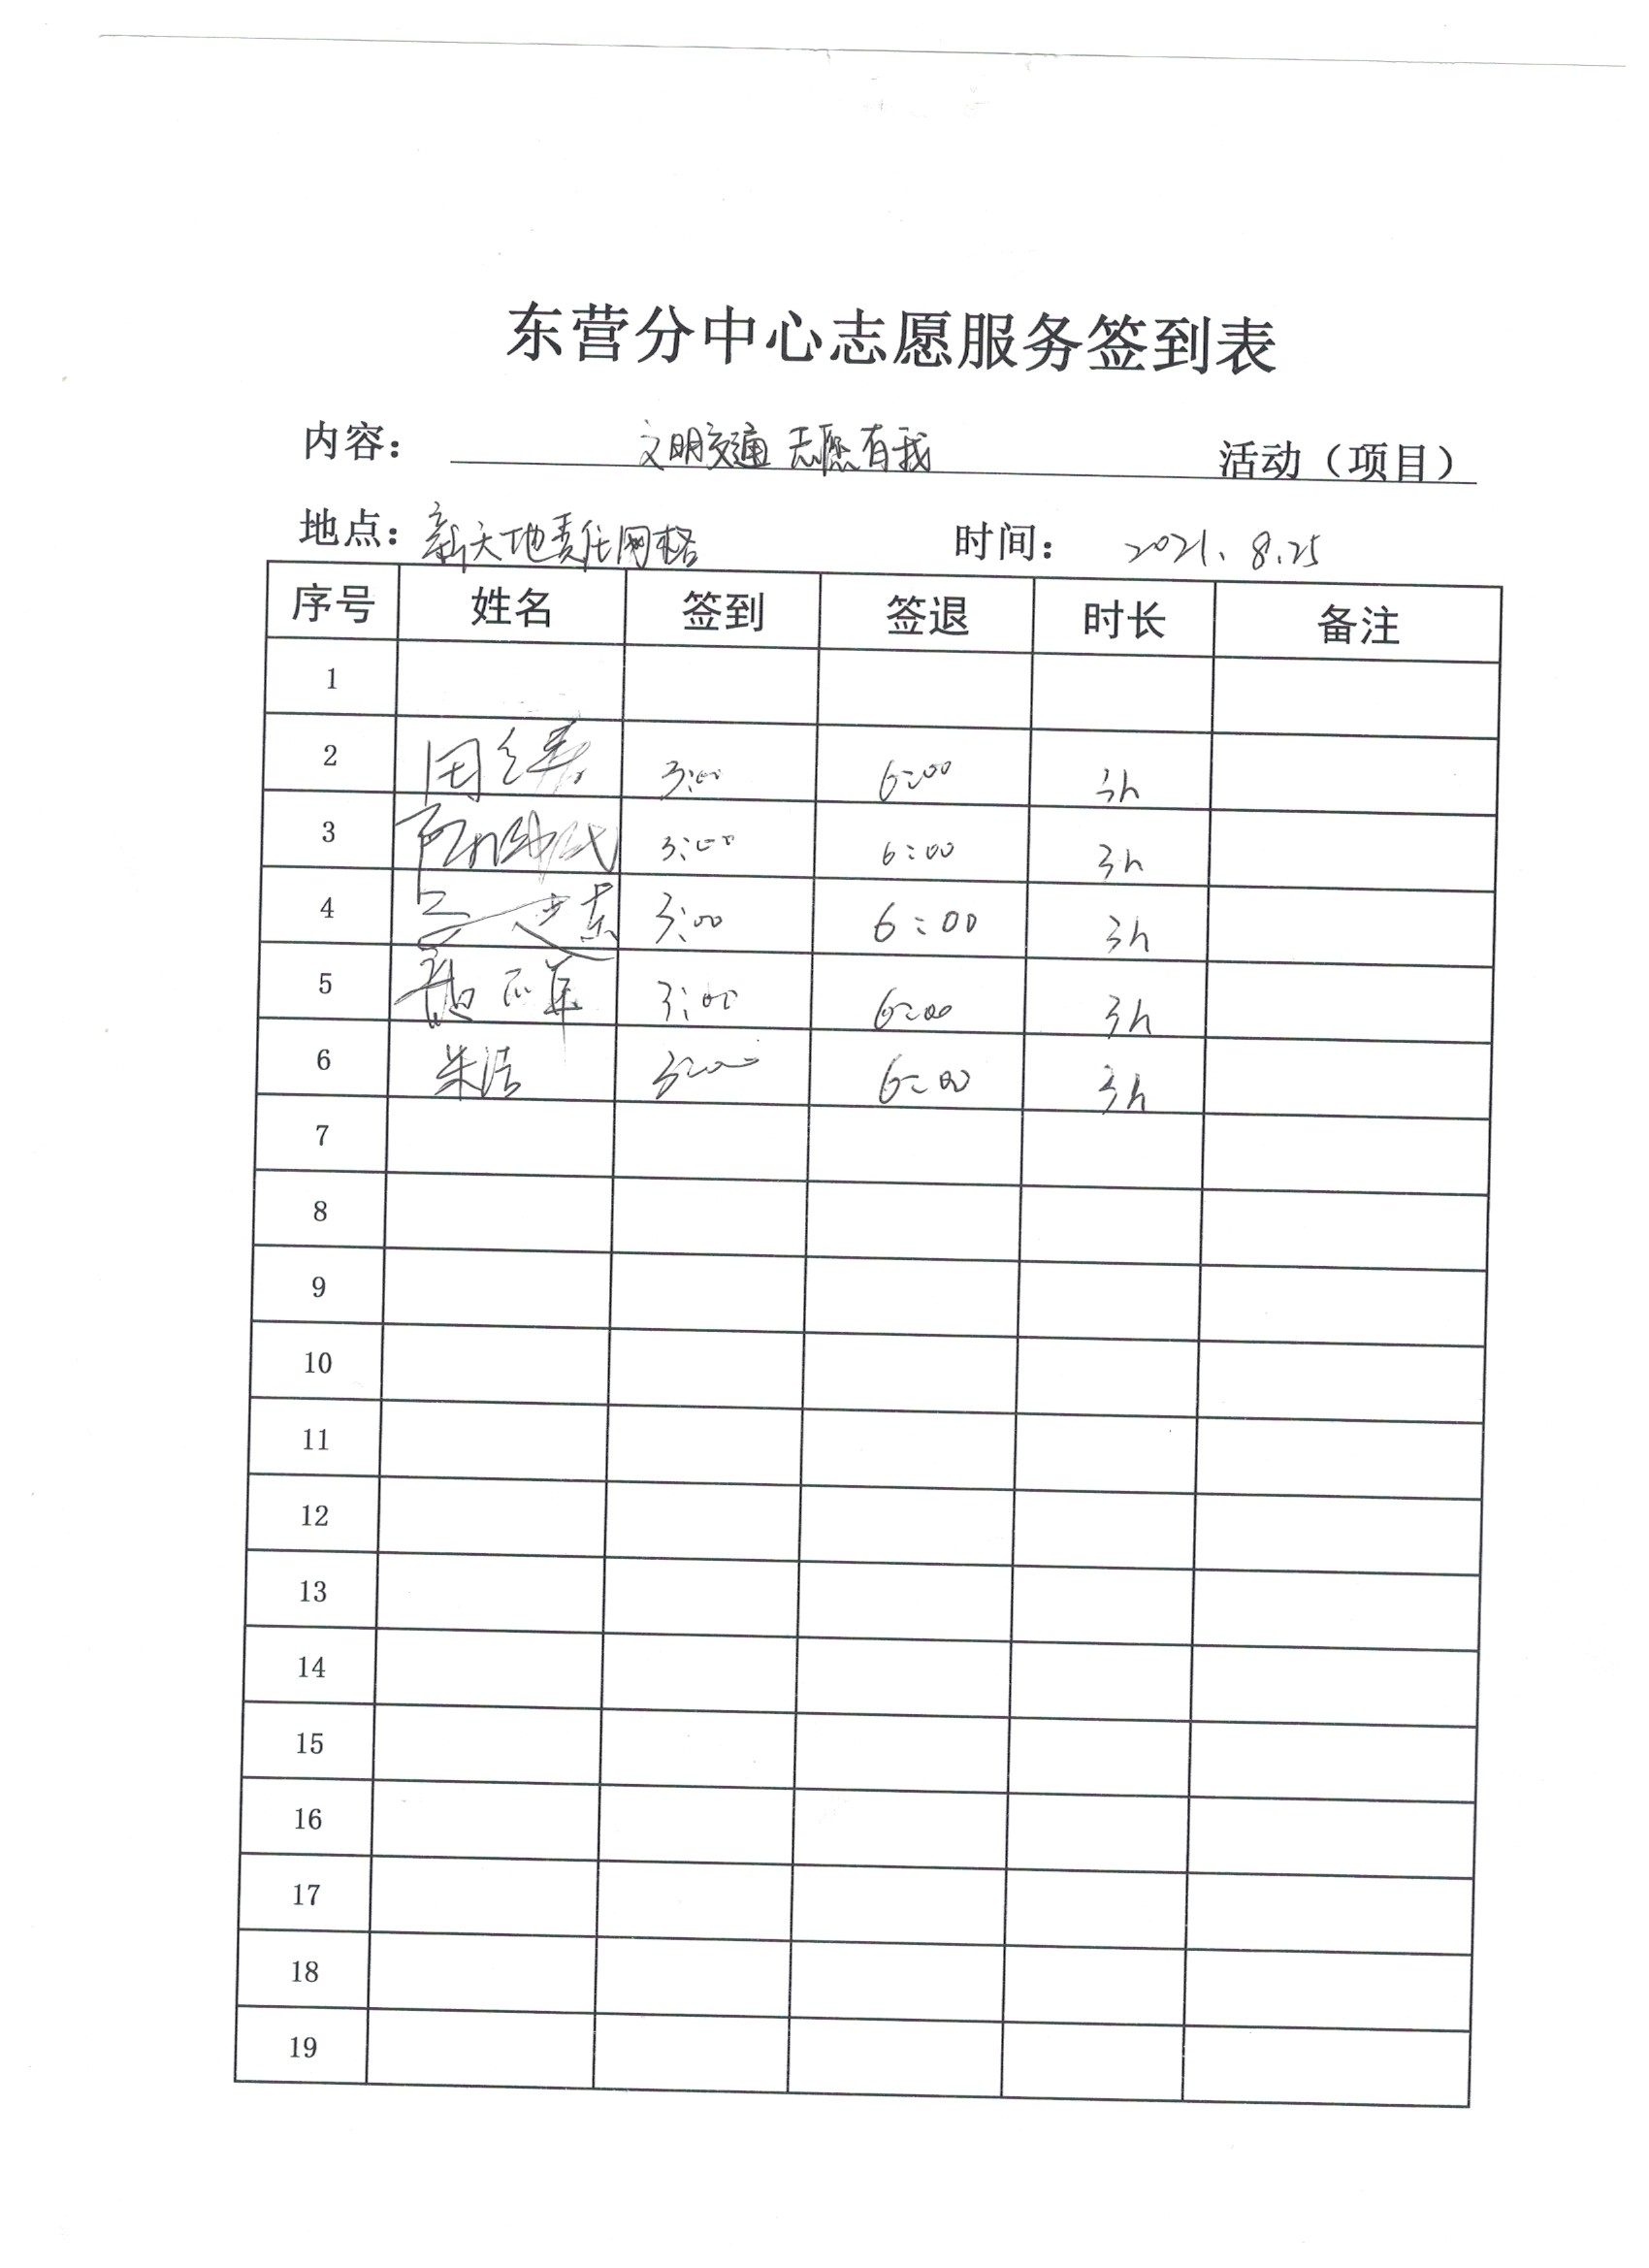 东营分中心志愿服务签到表
内容： 文明交通 志愿有我 活动（项目）
地点：新天地责任网格 时间： 2021、8.25
序号 姓名 签到 签退 时长 备注
1
2 3:00 6:00 3h
3 3:00 6:00 3h
4 3:00 6:00 3h
5 3:00 6:00 3h
6 朱洁 3:00 6:00 3h
7
8
9
10
11
12
13
14
15
16
17
18
19